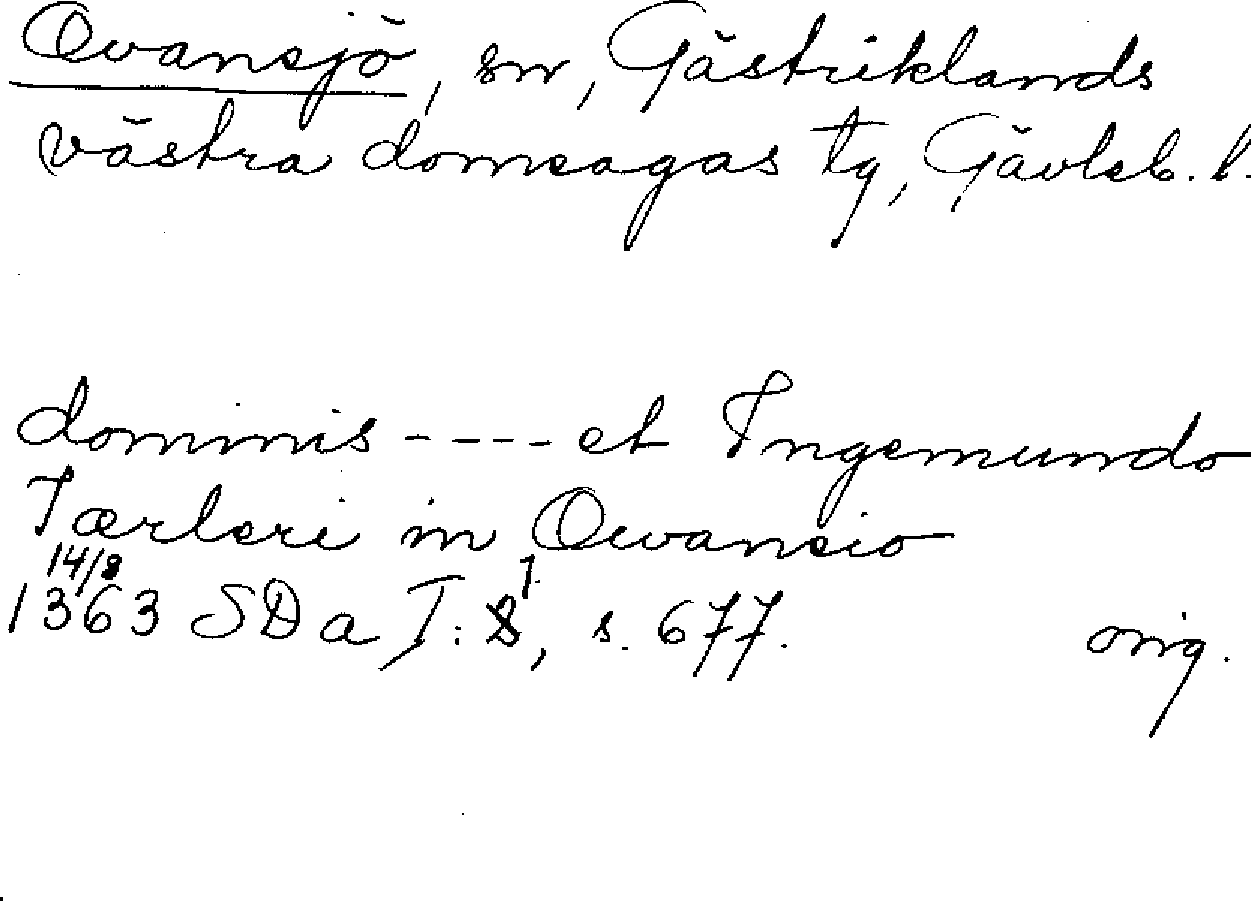 Ovansjö, sn, Gästriklands
västra domsagas tg, Gävleb. l.
dominis ---- et Ingemundo
Jærleri in Owansio
14/8
1363 SDa I: 1, s. 677. orig.